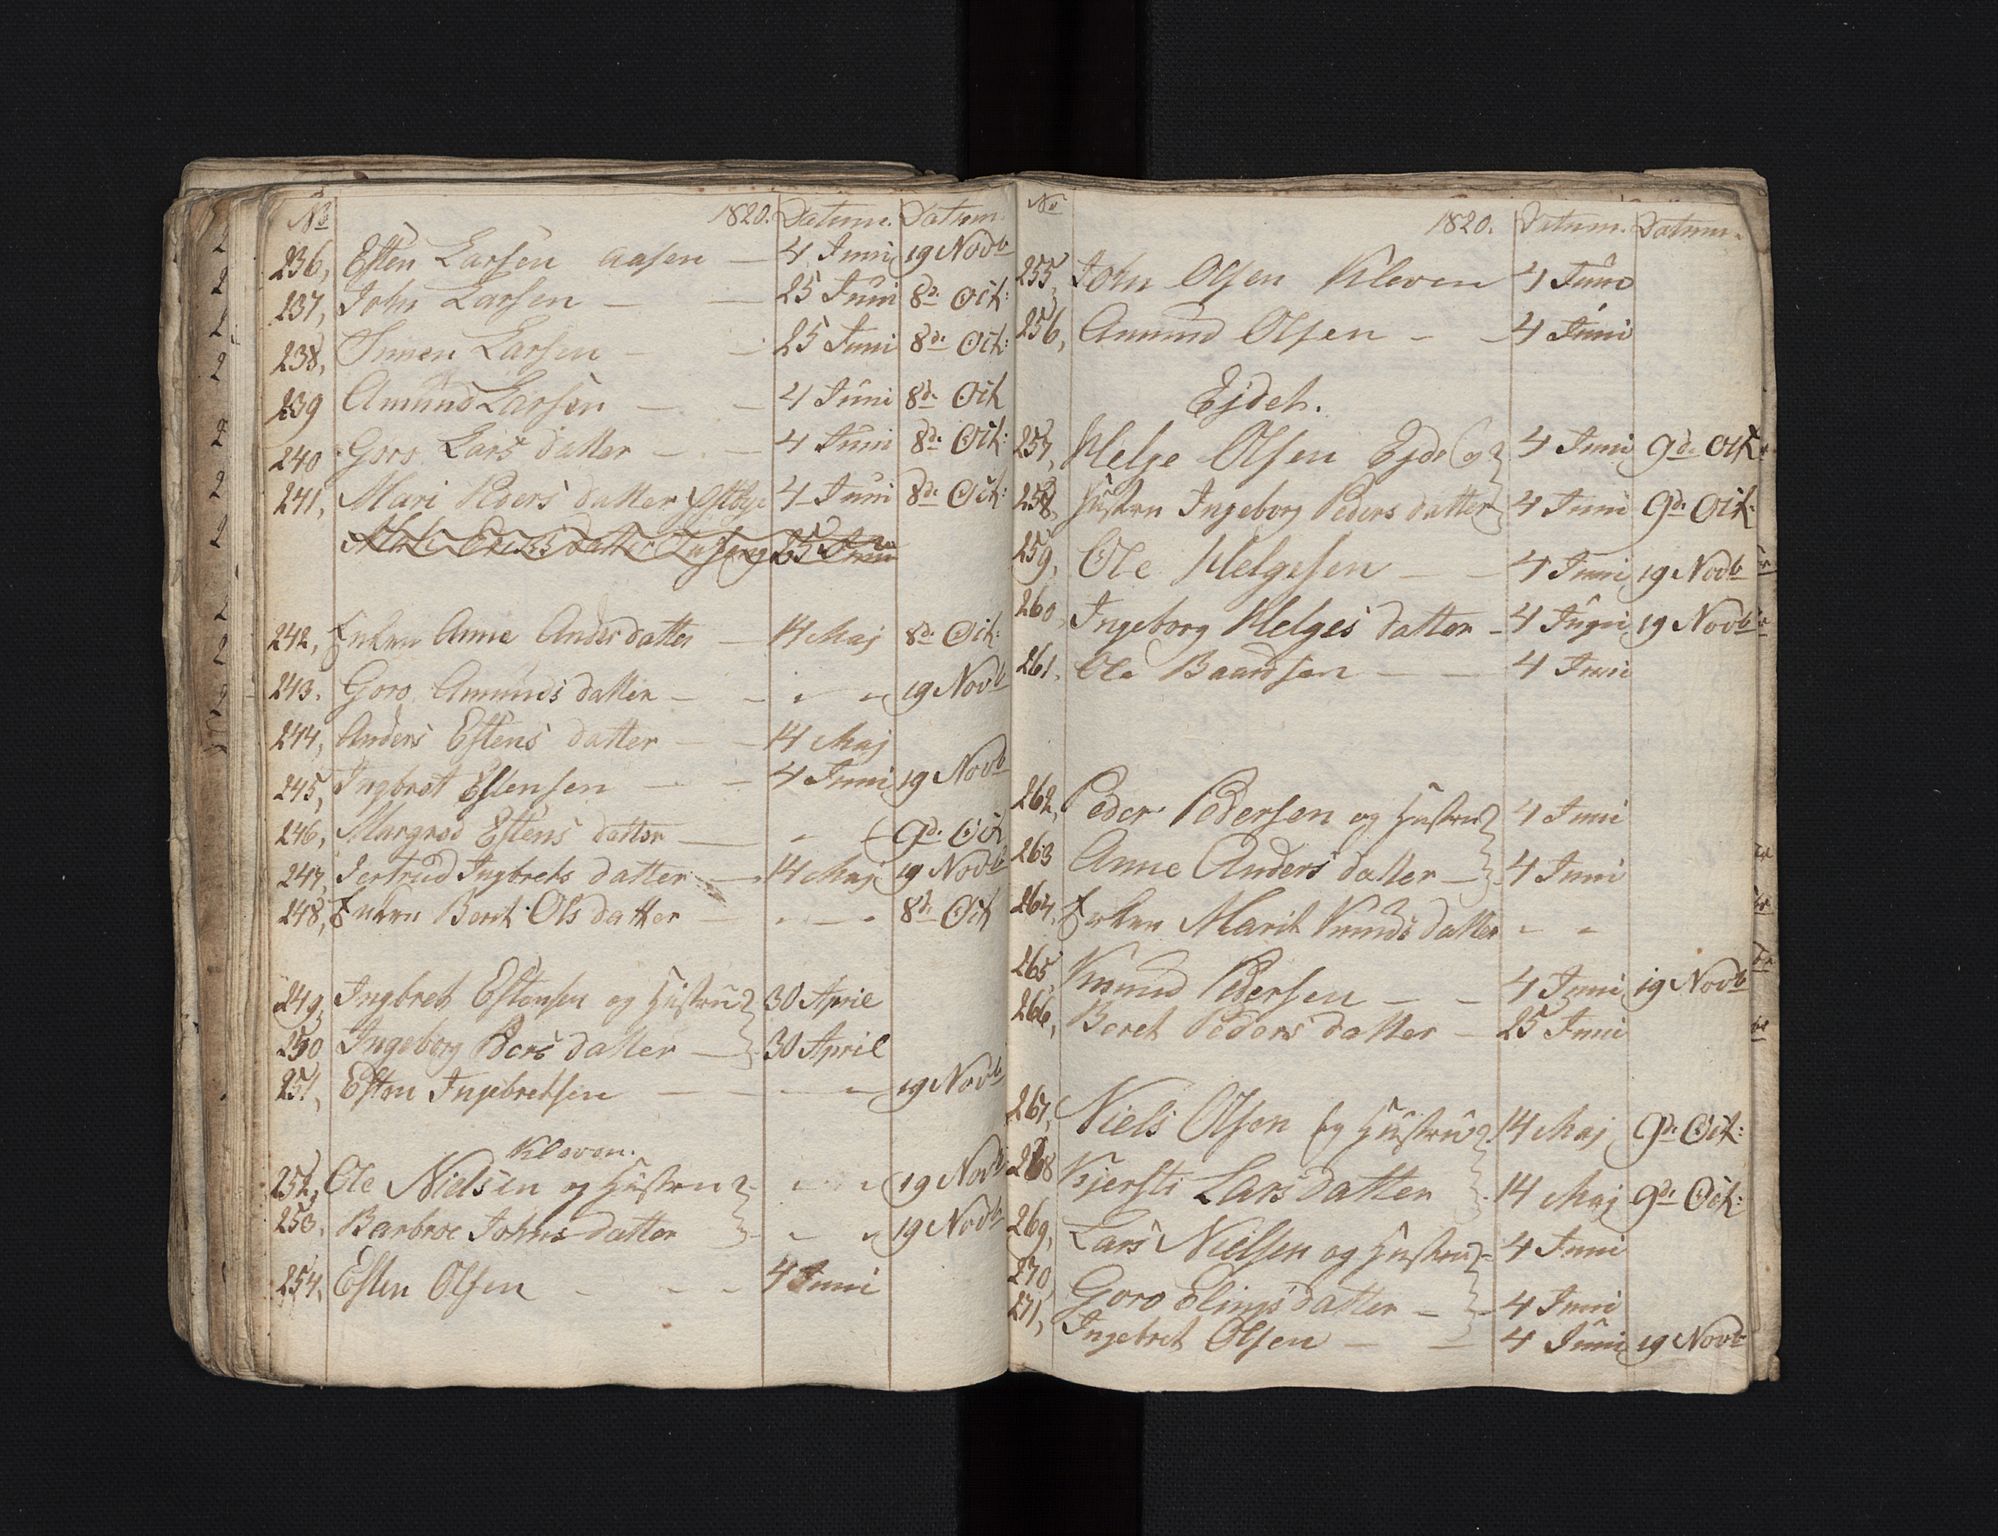 No 1820. Datum. Datum.
236, Esten Larsen Aasen — 4 Juni 19 Novb
237, John Larsen — — 25 Juni 8de Oct:
238, Simen Larsen — — 25 Juni 8de Oct:
239 Amund Larsen — — 4 Juni 8de Oct
240 Goro Lars datter — — 4 Juni 8de Oct:
241, Mari Peders datter Østbye 4 Juni 8de Oct:
Eriks datter 25 Juni
242, Enken Anne Anders datter — 14 Maj 8de Oct:
243. Goro Amunds datter — — " — " 19 Novb
244, Anders Estens datter — — 14 Maj
245, Ingbret Estensen — — 4 Juni 19 Novb
246, Margred Estens datter — " — " 9de Oct
247, Jertrud Ingbrets datter — 14 Maj 19 Novb
248, Enken Berit Ols datter — " — " 8de Oct
249, Ingbret Estensen og Hustru } 30 April
250 Ingeborg Peers datter — } 30 April
251, Esten Ingebretsen — — — 19 Novb
Kleven.
252, Ole Nielsen og Hustru } " — " 19 Novb
253. Barbroe Johns datter } " — " 19 Novb
254. Esten Olsen — — — 4 Juni
No 1820. Datum. Datum.
255, John Olsen Kleven 4 Juni
256, Amund Olsen — — 4 Juni
Ejdet.
257, Helge Olsen Ejde og } 4 Juni 9de Oct
258, Hustru Ingeborg Peders datter } 4 Juni 9de Oct:
259, Ole Helgesen — — 4 Juni 19 Novb
260, Ingeborg Helges datter — 4 Juni 19 Novb
261. Ole Baardsen — — 4 Juni
262, Peder Pedersen og Hustru } 4 Juni
263 Anne Anders datter — } 4 Juni
264, Enken Marit Knuds datter " "
265, Knud Pedersen — — 4 Juni 19 Novb
266, Beret Peders datter — 25 Juni
267, Niels Olsen og Hustru } 14 Maj 9de Oct:
268 Kjersti Lars datter } 14 Maj 9de Oct:
269, Lars Nielsen og Hustru } 4 Juni
270 Goro Elings datter — } 4 Juni
271, Ingebret Olsen — — 4 Juni 19 Novb